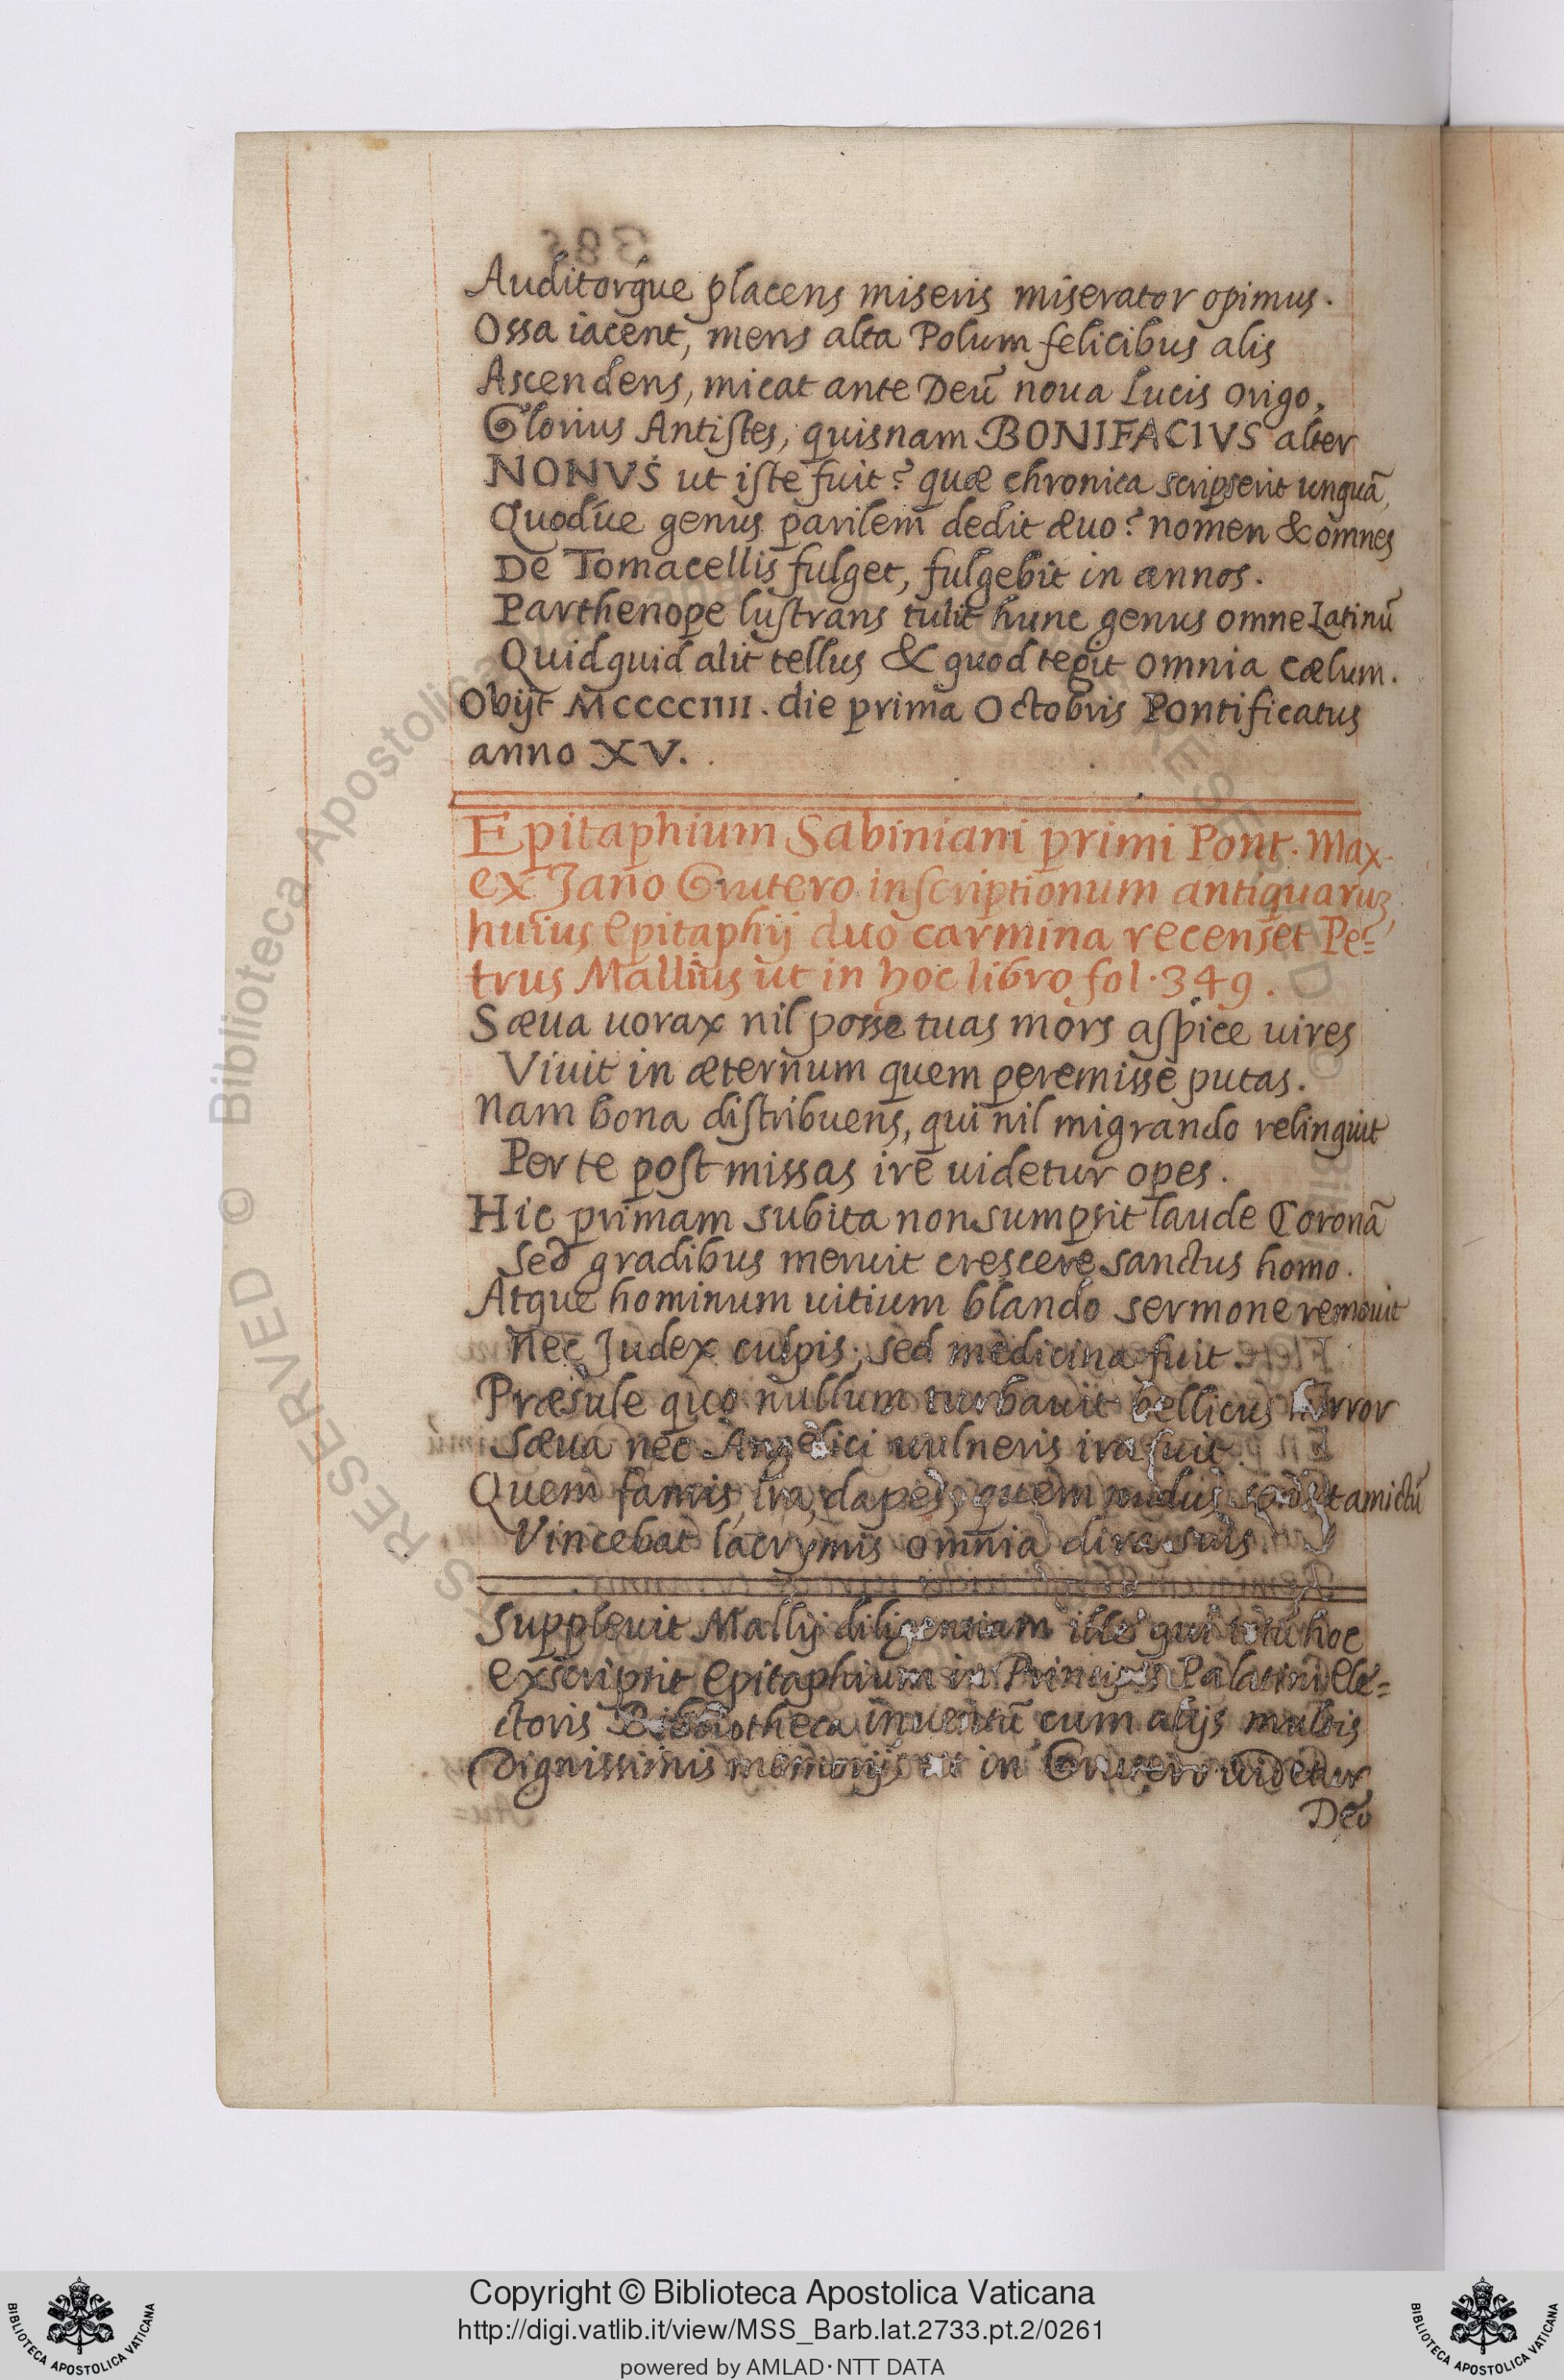 Auditorq́ue placens miseris miserator opimus.
Ossa iacent, mens alta Polum felicibus alis
Ascendens, micat ante Deũ noua Lucis origo,
Glorius Antistes, quisnam BONIFACIVS alter
NONVS ut iste fuit? quæ chronica scripserit unquã,
Quodue genus parilem dedit æuo? nomen & omnes
De Tomacellis fulget, fulgebit in annos.
Parthenope lustrans tulit hunc genus omne Latinũ
Quidquid alit tellus & quod tegit omnia cælum.
Obijt MCCCCIIII. die prima Octobris Pontificatus
anno XV.
Epitaphium Sabiniani primi Pont. Max.
ex Jano Grutero inscriptionum antiquaruʒ,
huius epitaphij duo carmina recenset Pe=
trus Mallius ut in hoc libro fol. 349.
Sæua uorax nil posse tuas mors aspice uires
Viuit in æternum quem peremisse putas.
Nam bona distribuens, qui nil migrando relinquit
Per te post missas ire uidetur opes.
Hic primam subita non sumpsit laude Coronã
Sed gradibus meruit crescere sanctus homo.
Atque hominum uitium blando sermone remouit
Nec Judex culpis, sed medicina fuit.
Præsule quo nullum turbauit bellicus horror
Sæua nec Angelici uulneris ira fuit.
Quem famis, ira, dapes, quem nudus amictũ
Vincebat lacrymis omnia dira suis.
Suppleuit Mallij diligentiam ille qui totũ hoc
exscripsit epitaphium in Principis Palatini Ele=
ctoris Bibliotheca inuentũ cum alijs multis
Dignissimis memorijs ut in Grutero uidetur,
Deo
385
Copyright © Biblioteca Apostolica Vaticana
http://digi.vatlib.it/view/MSS_Barb.lat.2733.pt.2/0261
powered by AMLAD·NTT DATA
BIBLIOTECA APOSTOLICA VATICANA
BIBLIOTECA APOSTOLICA VATICANA